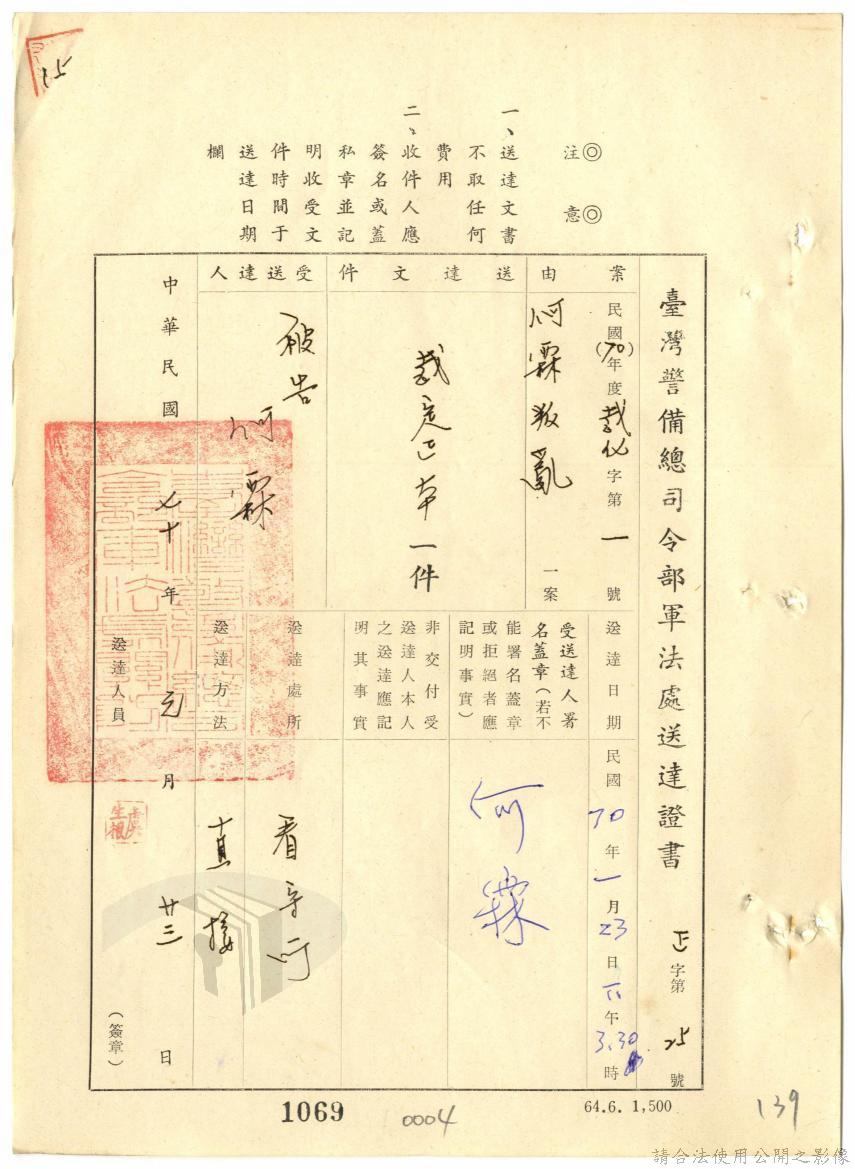 15
◎注意◎
一、送達文書
不取任何
費用
二、收件人應
簽名或蓋
私章並記
明收受文
件時間于
送達日期
欄
臺灣警備總司令部軍法處送達證書 正字第25號
案由
民國(70)年度裁化字第一號
何霖叛亂一案
送達文件
裁定正本一件
受送達人
被告
何霖
送達日期
民國70年1月23日下午3.30時
受送達人署
名蓋章(若不
能署名蓋章
或拒絕者應
記明事實)
何霖
非交付受
送達人本人
之送達應記
明其事實
送達處所
看守所
送達方法
直接
中華民國七十年元月廿三日
送達人員
(簽章)
1069
0004
64.6. 1,500
139
請合法使用公開之影像